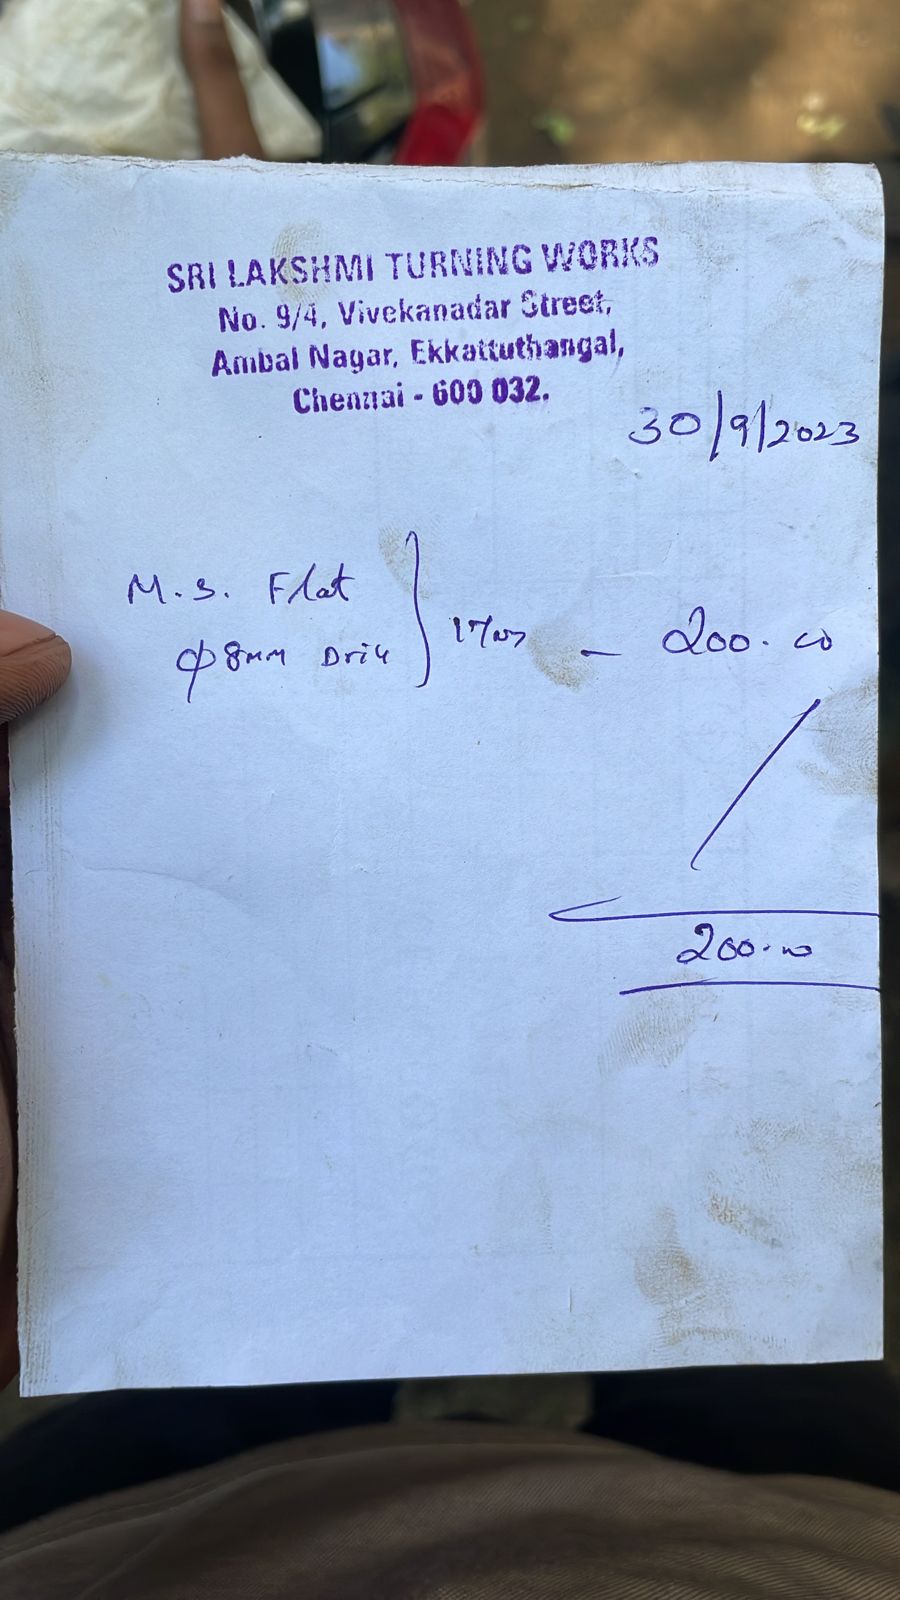 SRI LAKSHMI TURNING WORKS
No. 9/4, Vivekanadar Street,
Ambal Nagar, Ekkattuthangal,
Chennai - 600 032.
30/9/2023
M.S. Flat
φ8mm Drill
- 200.00
200.00